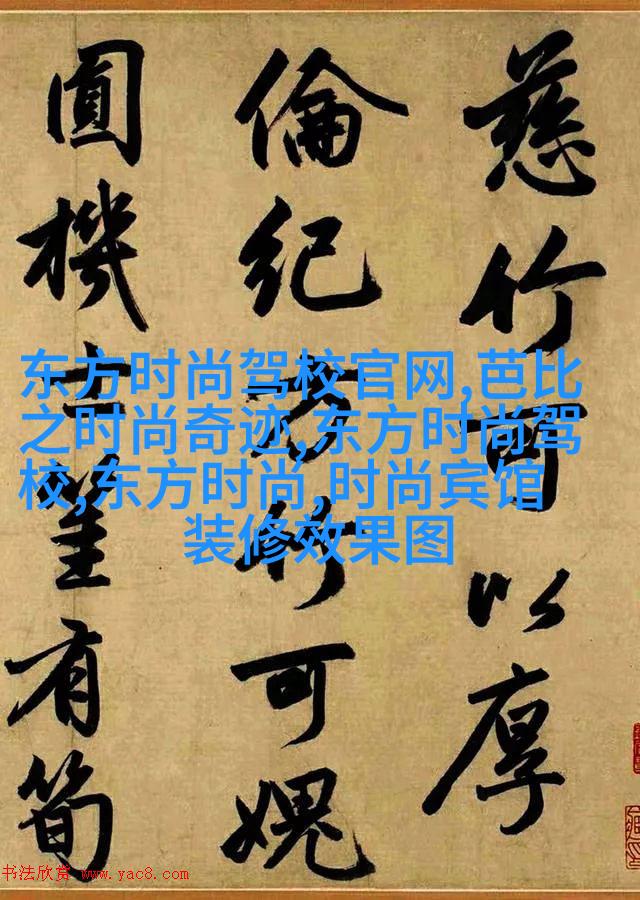 慈竹可以厚
倫紀方竹可媿
圓機士筀有筍
东方时尚驾校官网,芭比
之时尚奇迹,东方时尚驾
校,东方时尚,时尚宾馆
装修效果图
书法欣赏 www.yac8.com